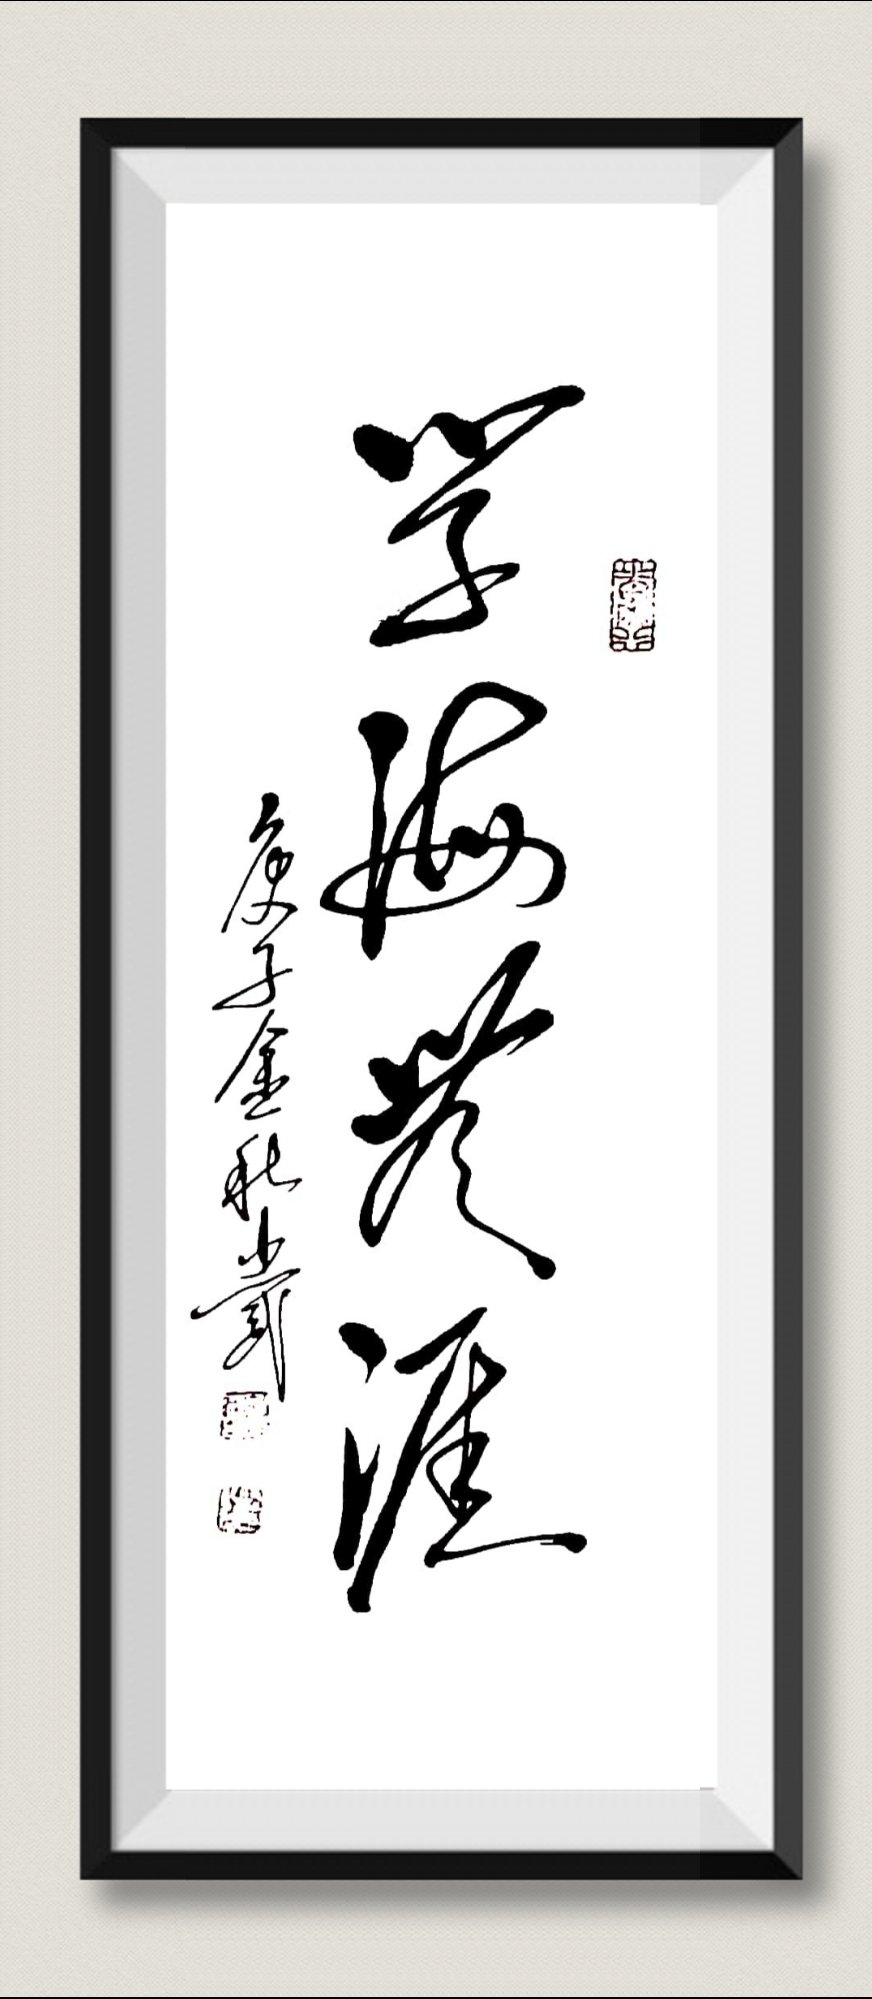 学海无涯
庚子金秋小戴